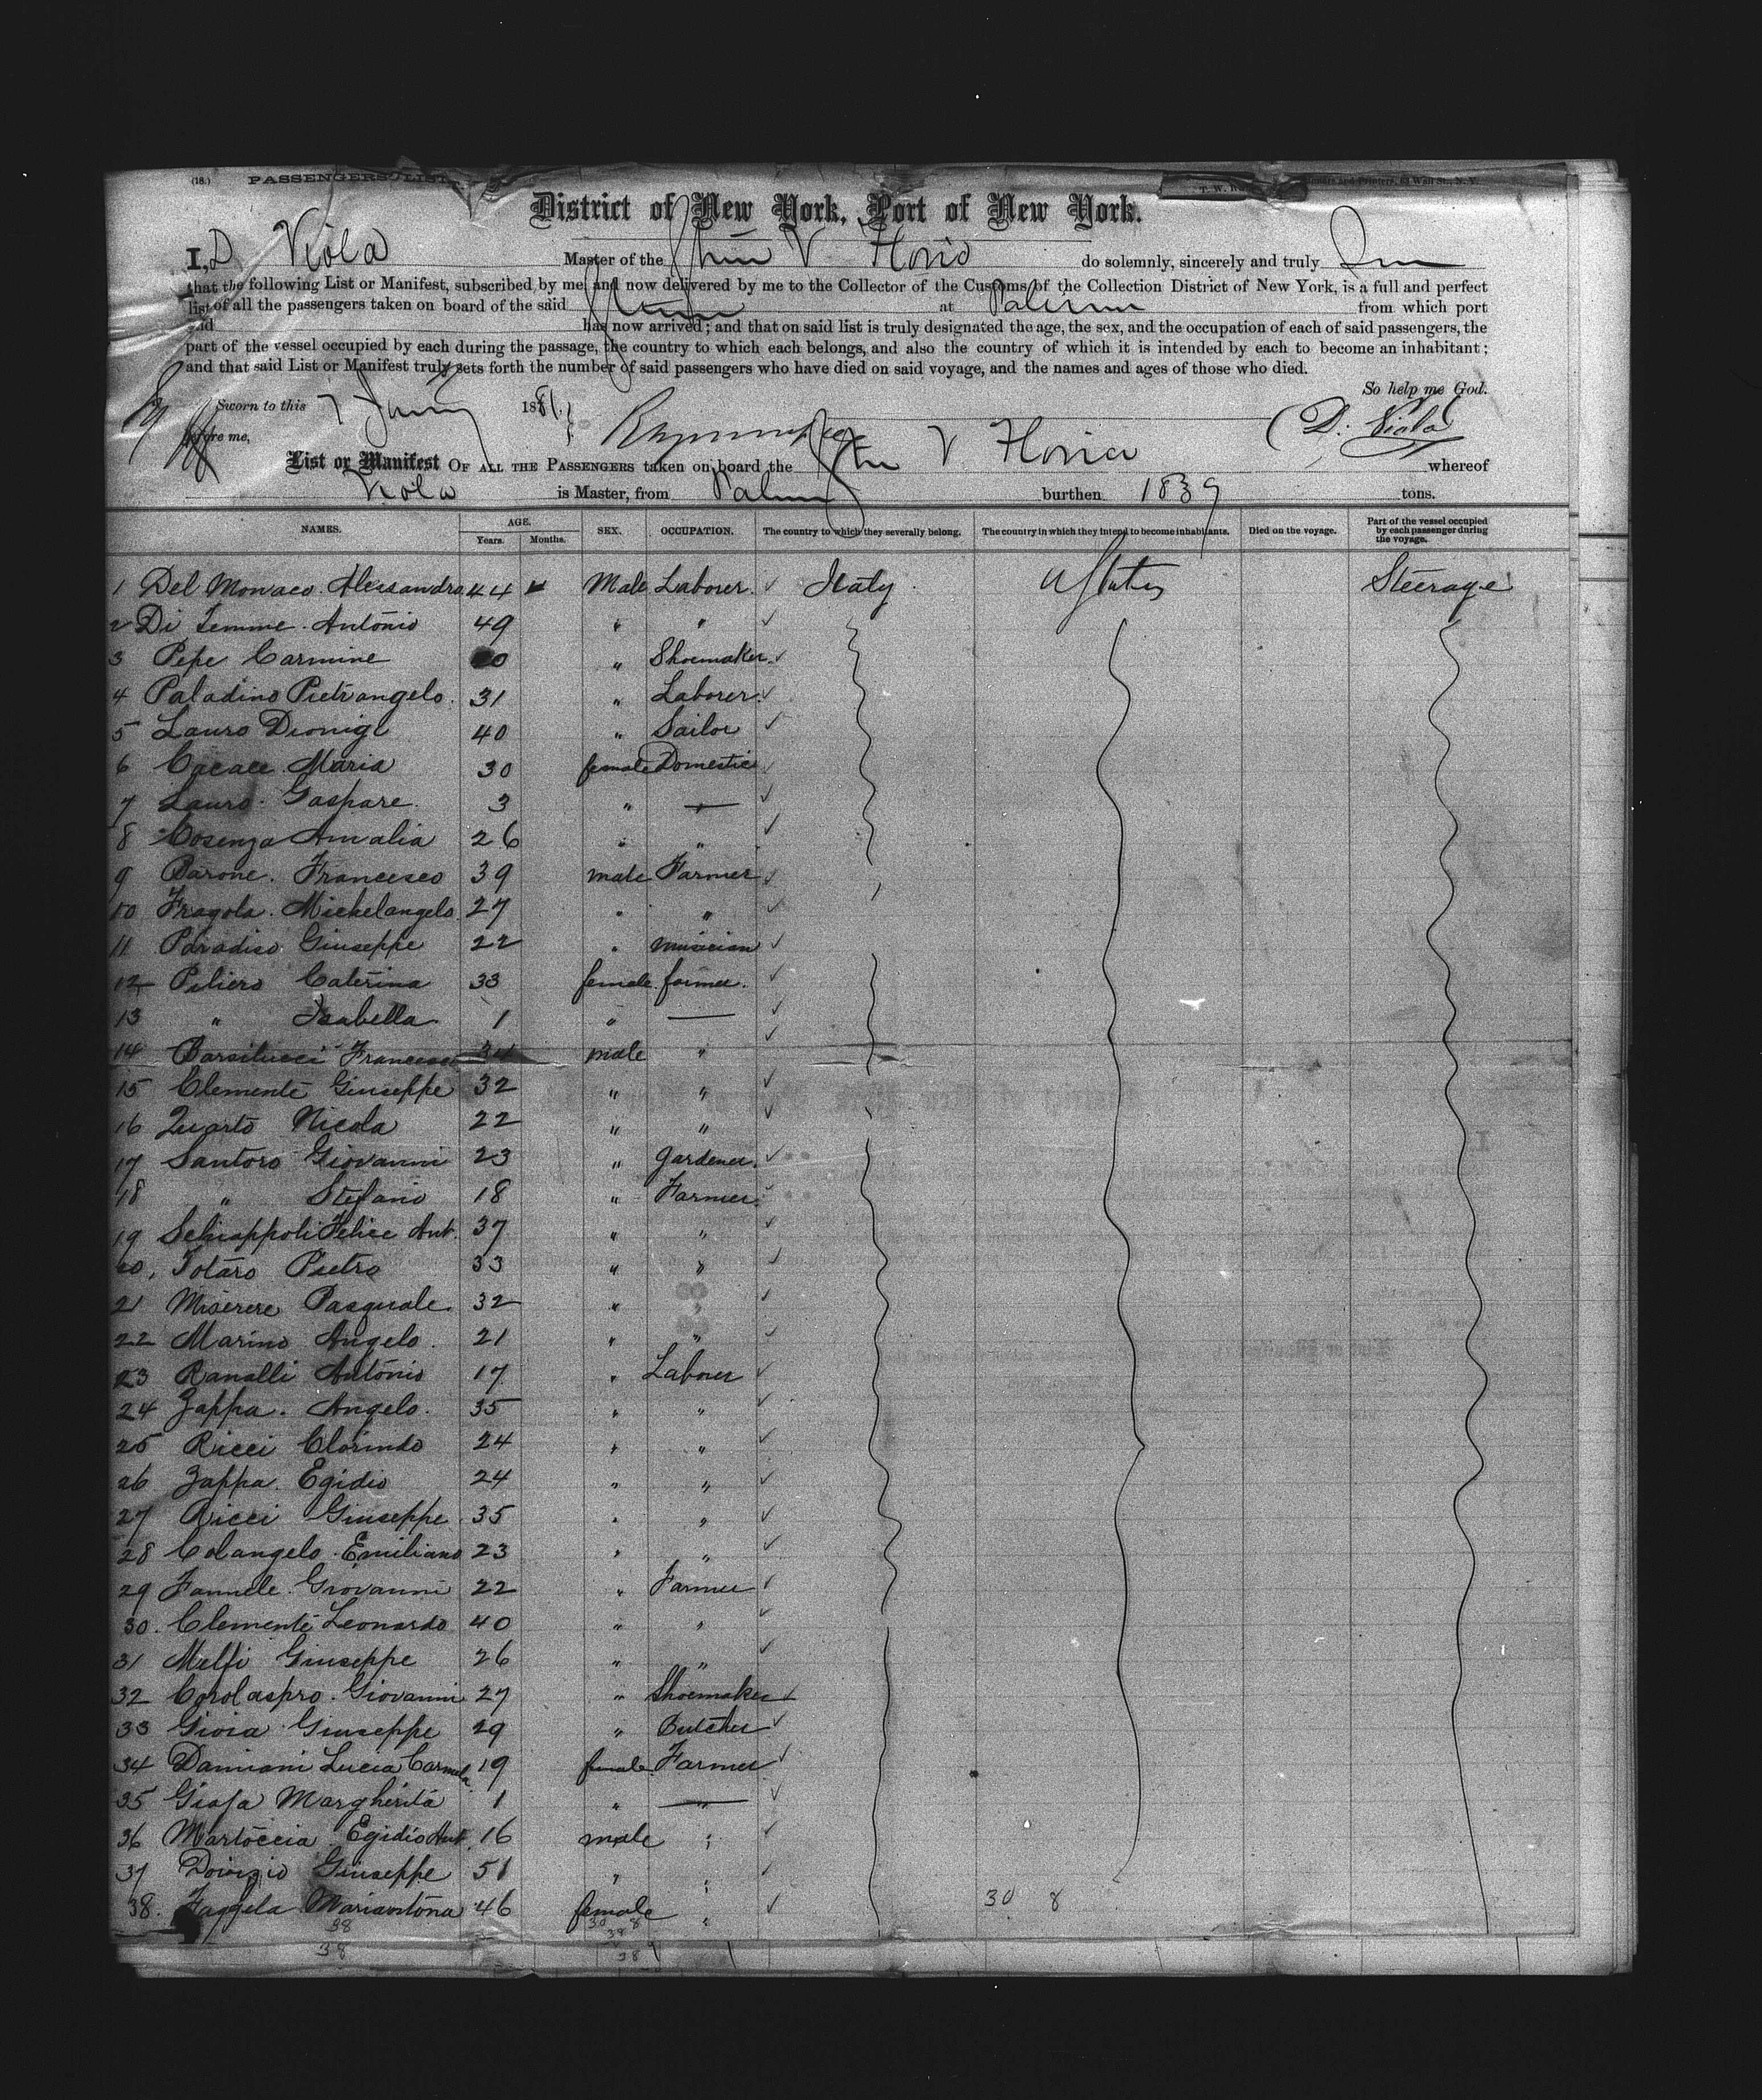 (18.) PASSENGERS' LIST.
District of New York, Port of New York.
I, D Viola Master of the Stmr V Florio do solemnly, sincerely and truly
that the following List or Manifest, subscribed by me and now delivered by me to the Collector of the Customs of the Collection District of New York, is a full and perfect
list of all the passengers taken on board of the said at Palermo from which port
said has now arrived; and that on said list is truly designated the age, the sex, and the occupation of each of said passengers, the
part of the vessel occupied by each during the passage, the country to which each belongs, and also the country of which it is intended by each to become an inhabitant;
and that said List or Manifest truly sets forth the number of said passengers who have died on said voyage, and the names and ages of those who died.
So help me God.
Sworn to this 7 1881.
before me, D. Viola
List or Manifest OF ALL THE PASSENGERS taken on board the V Florio whereof
Viola is Master, from Palermo burthen 1839 tons.
NAMES. AGE. Years. Months. SEX. OCCUPATION. The country to which they severally belong. The country in which they intend to become inhabitants. Died on the voyage. Part of the vessel occupied by each passenger during the voyage.
1 Del Monaco Alessandro 44 Male Laborer. Italy U States Steerage
2 Di Iemme Antonio 49 " "
3 Pepe Carmine " Shoemaker
4 Paladino Pietrangelo. 31 " Laborer
5 Lauro Dionigi 40 " Sailor
6 Cacace Maria 30 female Domestic
7 Lauro Gaspare. 3 " —
8 Cosenza Amalia 26 " "
9 Barone. Francesco 39 male Farmer
10 Fragola. Michelangelo 27 " "
11 Paradiso Giuseppe 22 " musician
12 Piliero Caterina 33 female farmer.
13 " Isabella 1 " —
14 Barsilucci Francesco 34 male "
15 Clemente Giuseppe 32 " "
16 Quarto Nicola 22 " "
17 Santoro Giovanni 23 " Gardener.
18 " Stefano 18 " Farmer
19 Schiappoli Felice Ant. 37 " "
20, Totaro Pietro 33 " "
21 Miserere Pasquale 32 " "
22 Marino Angelo. 21 " "
23 Ranalli Antonio 17 " Laborer
24 Zappa. Angelo. 35 " "
25 Ricci Clorindo 24 " "
26 Zappa. Egidio 24 " "
27 Ricci Giuseppe 35 " "
28 Colangelo. Emiliano 23 " "
29 Iannele Giovanni 22 " Farmer
30. Clemente Leonardo 40 " "
31 Melfi Giuseppe 26 " "
32 Carolaspro. Giovanni 27 " Shoemaker
33 Gioia Giuseppe 29 " Butcher
34 Damiani Lucia Carmela 19 female Farmer
35 Giofa Margherita 1 " —
36 Martoccia Egidio Ant 16 male "
37 Giuseppe 51 " "
38. Faggela Mariantona 46 female " 30 8
38 30 8
38 38
38